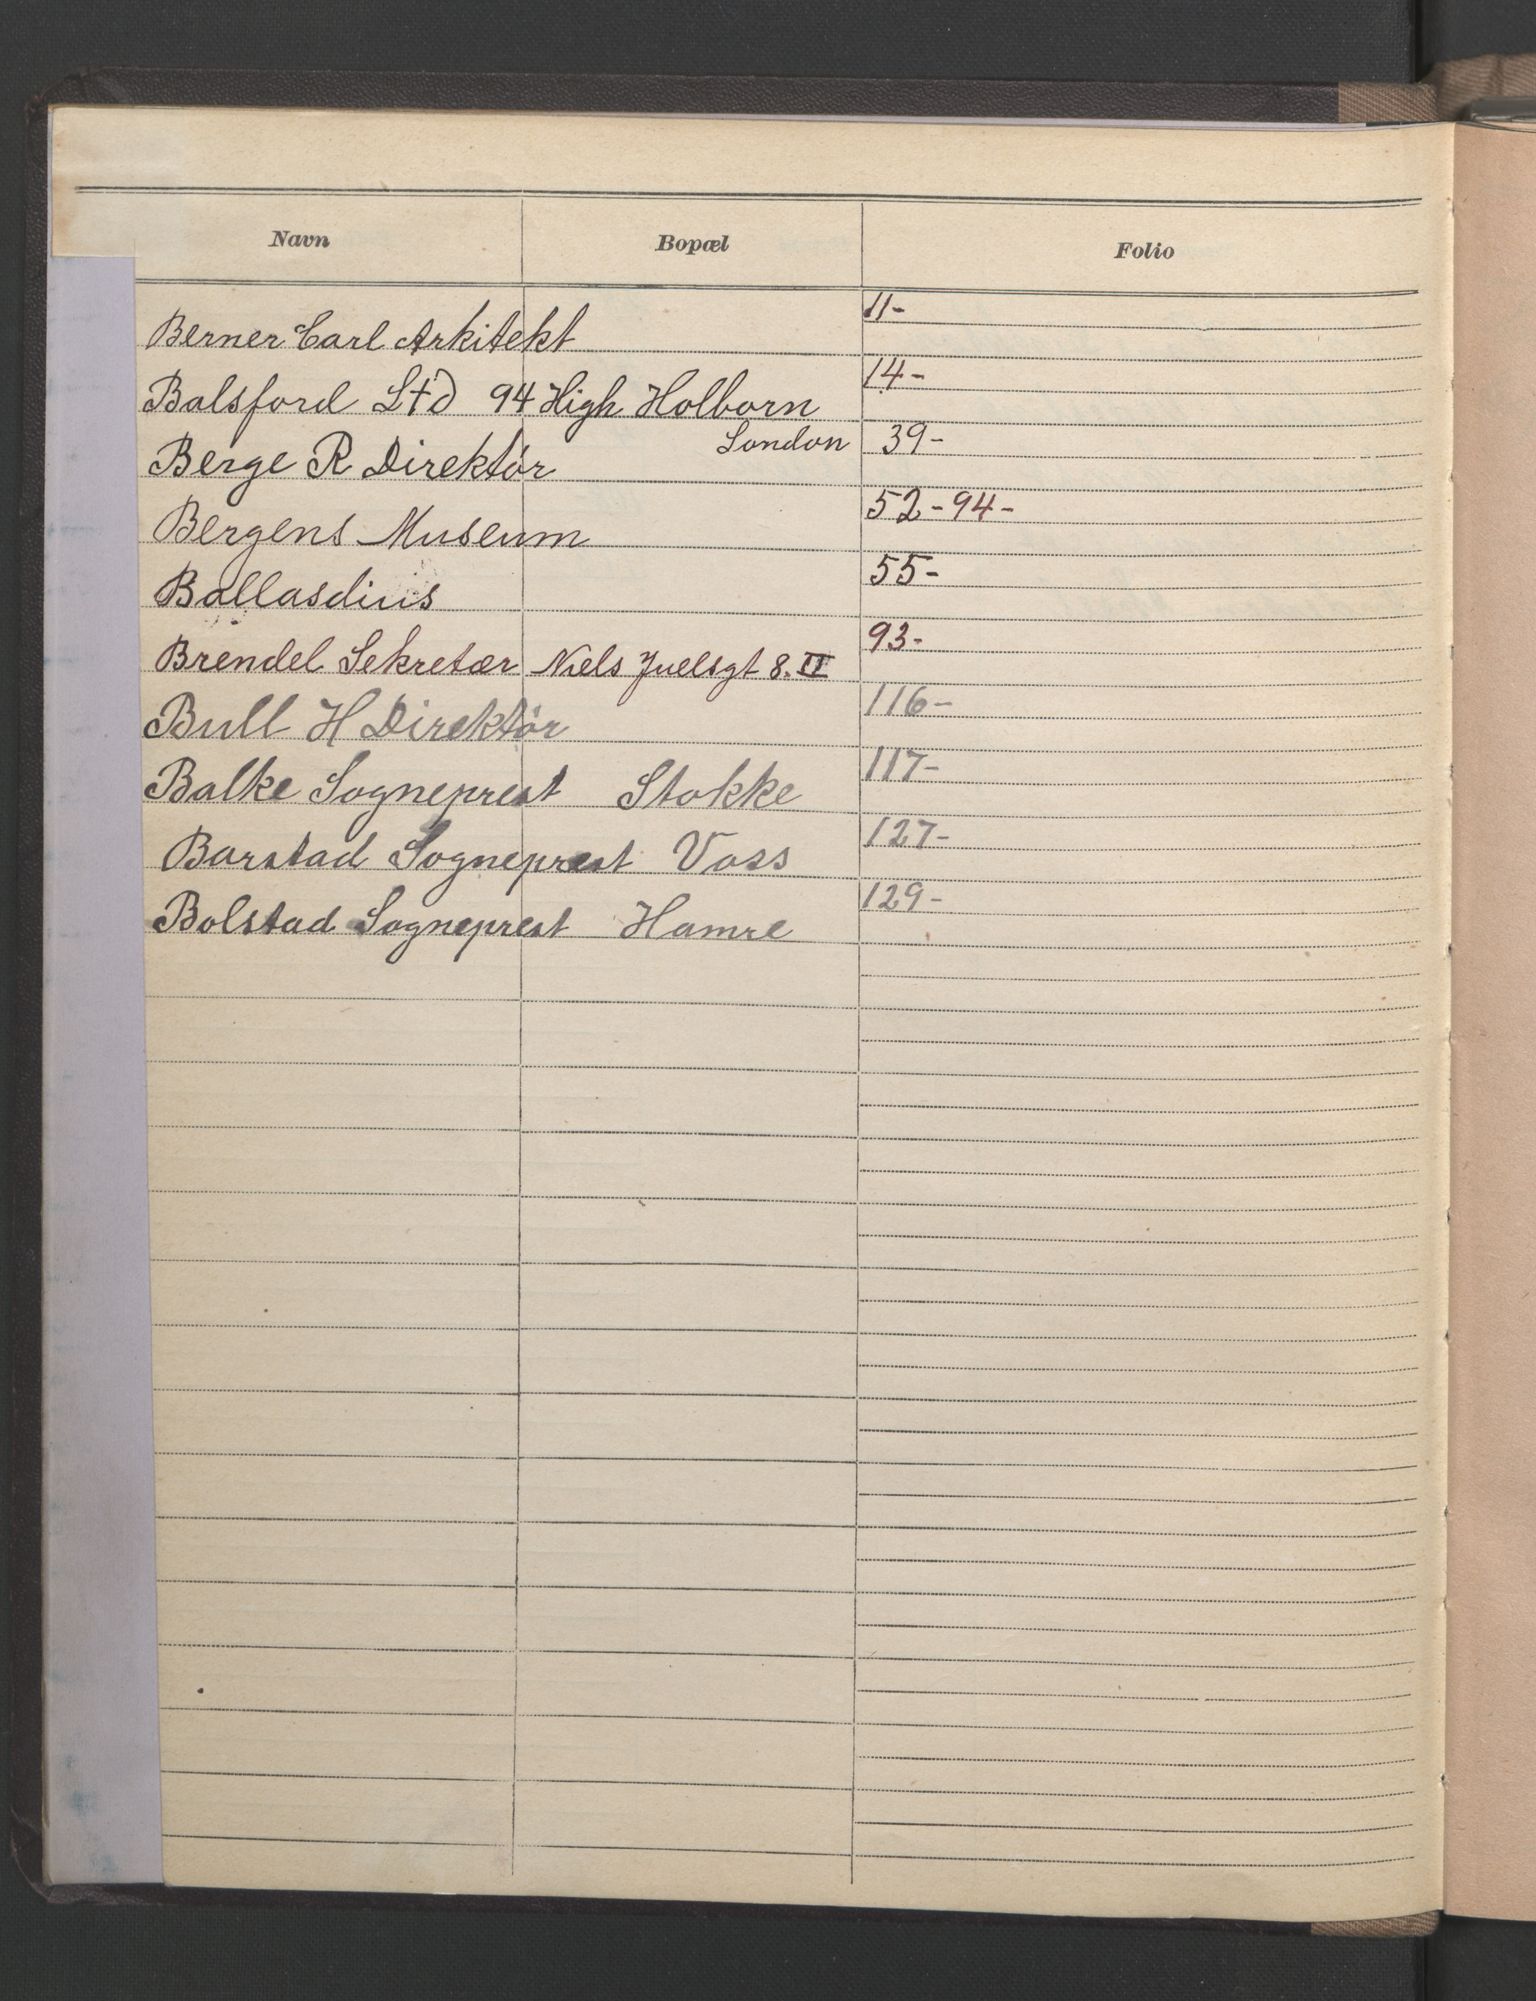 Navn Bopæl Folio
Berner Carl Arkitekt 11-
Balsford Ltd 94 High Holborn 14-
London
Berge R Direktør 39-
Bergens Museum 52-94-
55-
Brendel Sekretær Niels Juelsgt 8. II 93-
Bull H Direktør 116-
Balke Sogneprest Stokke 117-
Barstad Sogneprest Voss 127-
Bolstad Sogneprest Hamre 129-